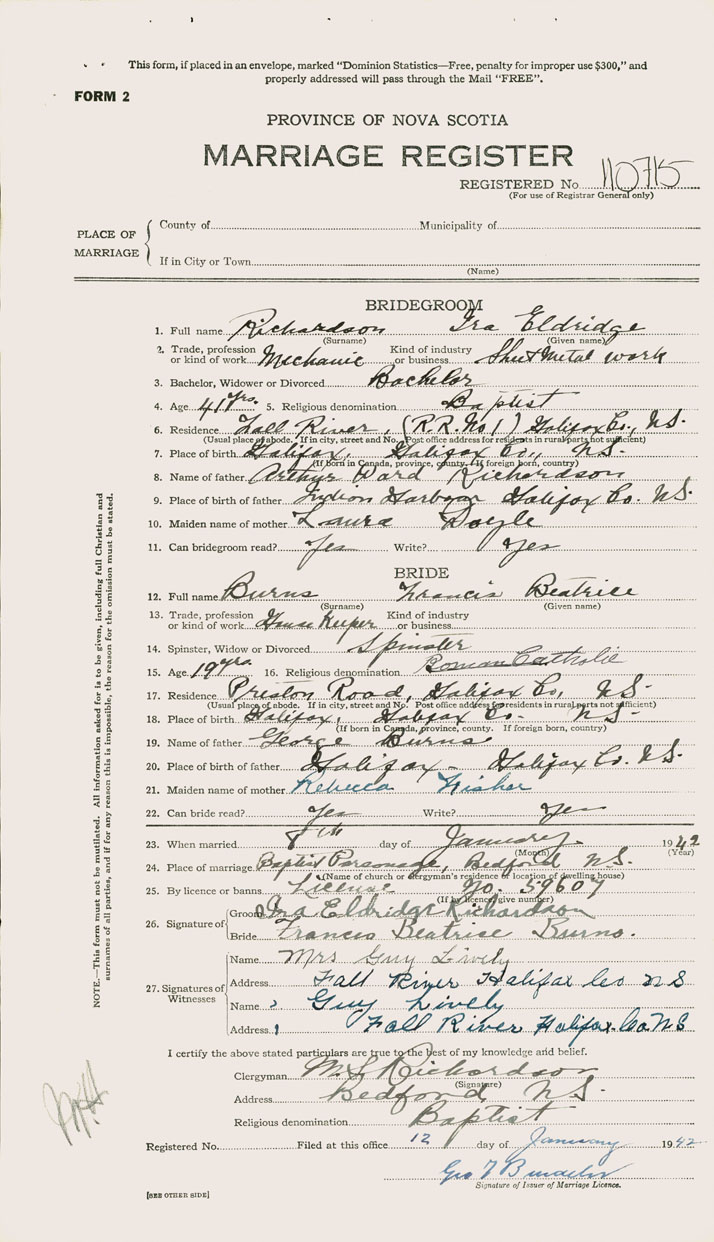 This form, if placed in an envelope, marked "Dominion Statistics—Free, penalty for improper use $300," and
properly addressed will pass through the Mail "FREE".
FORM 2
PROVINCE OF NOVA SCOTIA
MARRIAGE REGISTER
REGISTERED No. 110715
(For use of Registrar General only)
PLACE OF MARRIAGE
County of Municipality of
If in City or Town
(Name)
BRIDEGROOM
1. Full name Richardson Ira Eldridge
(Surname) (Given name)
2. Trade, profession or kind of work Mechanic Kind of industry or business Sheet Metal work
3. Bachelor, Widower or Divorced Bachelor
4. Age 41 yrs. 5. Religious denomination Baptist
6. Residence Fall River, (R.R. No 1) Halifax Co., N.S.
(Usual place of abode. If in city, street and No. Post office address for residents in rural parts not sufficient)
7. Place of birth Halifax, Halifax Co., N.S.
(If born in Canada, province, county. If foreign born, country)
8. Name of father Arthur Ward Richardson
9. Place of birth of father Indian Harbour Halifax Co. N.S.
10. Maiden name of mother Laura Doyle
11. Can bridegroom read? Yes Write? Yes
BRIDE
12. Full name Burns Francis Beatrice
(Surname) (Given name)
13. Trade, profession or kind of work House Keeper Kind of industry or business
14. Spinster, Widow or Divorced Spinster
15. Age 19 yrs 16. Religious denomination Roman Catholic
17. Residence Preston Road, Halifax Co, N.S.
(Usual place of abode. If in city, street and No. Post office address for residents in rural parts not sufficient)
18. Place of birth Halifax, Halifax Co. N.S.
(If born in Canada, province, county. If foreign born, country)
19. Name of father George Burns
20. Place of birth of father Halifax - Halifax Co. N.S.
21. Maiden name of mother Rebecca
22. Can bride read? Yes Write? Yes
23. When married 8th day of January 1942
(Month) (Year)
24. Place of marriage Baptist Parsonage, Bedford N.S.
(Name of church or clergyman's residence or location of dwelling house)
25. By licence or banns License No. 59607
(If by licence give number)
26. Signature of
Groom Ira Eldridge Richardson
Bride Francis Beatrice Burns.
27. Signatures of Witnesses
Name Mrs Guy Lively
Address Fall River Halifax Co N S
Name Guy Lively
Address Fall River Halifax Co N S
I certify the above stated particulars are true to the best of my knowledge and belief.
Clergyman M S Richardson
(Signature)
Address Bedford, N S.
Religious denomination Baptist
Registered No. Filed at this office 12 day of January 1942
Geo T
Signature of Issuer of Marriage Licence.
[SEE OTHER SIDE]
NOTE.—This form must not be mutilated. All information asked for is to be given, including full Christian and
surnames of all parties, and if for any reason this is impossible, the reason for the omission must be stated.